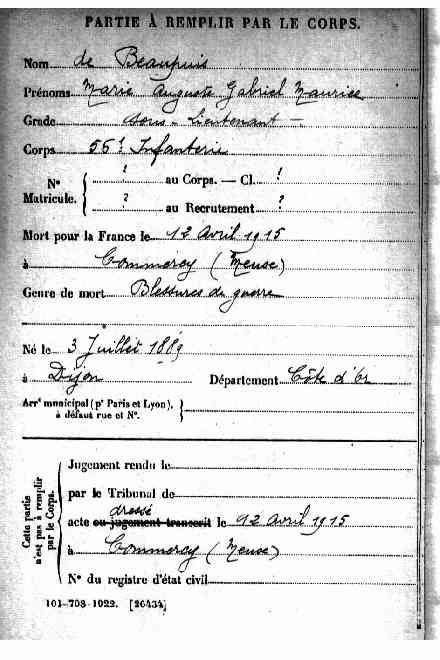 PARTIE À REMPLIR PAR LE CORPS.
Nom de Beaupuis
Prénoms Marie Auguste Gabriel Maurice
Grade sous-Lieutenant —
Corps 56e Infanterie
N° Matricule. { ? au Corps. — Cl. ?
? au Recrutement ?
Mort pour la France le 12 Avril 1915
à Commercy (Meuse)
Genre de mort Blessures de guerre
Né le 3 Juillet 1889
à Dijon Département Côte d'Or
Arrt municipal (pr Paris et Lyon), à défaut rue et N°. }
Cette partie n'est pas à remplir par le Corps. {
Jugement rendu le
par le Tribunal de
dressé
acte ou jugement transcrit le 12 avril 1915
à Commercy (Meuse)
N° du registre d'état civil
101-708-1922. [26434]